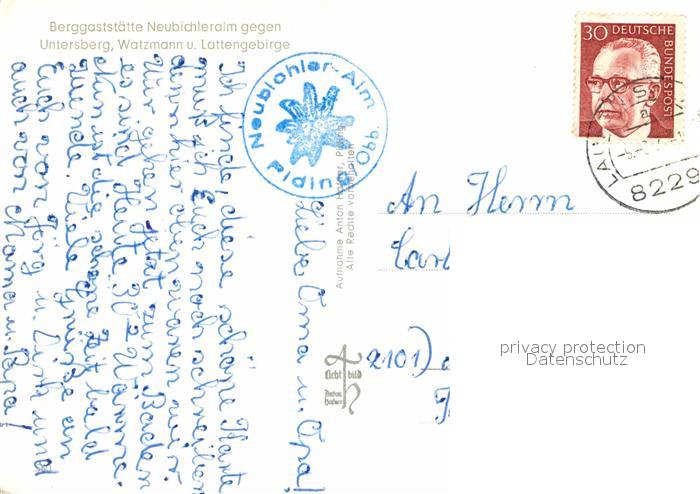 Berggaststätte Neubichleralm gegen
Untersberg, Watzmann u. Lattengebirge
Neubichler-Alm
Piding Obb.
30 DEUTSCHE BUNDESPOST
8229
Aufnahme Anton Hafner, Piding
Alle Rechte vorbehalten
Licht bild
Anton Hafner
An Herrn
Carl
2101)
privacy protection
Datenschutz
Liebe Oma u. Opa!
Ich finde, diese schöne Karte
muß ich Euch noch schreiben
denn hier oben waren wir.
Wir gehen jetzt zum Baden
es sind Heute 30° Warm.
Nun ist die schöne Zeit bald
zuende. Viele Grüße an
Euch von Jörg u. und
auch von Mama u. Papa!